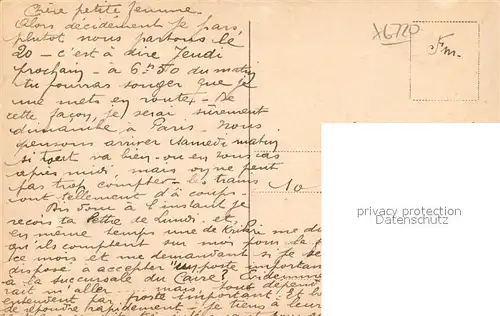 Chère petite femme.
Alors décidément je pars,
plutôt nous partons le
20 - c'est à dire Jeudi
prochain - à 6h50 du matin
tu pourras songer que je
me mets en route - De
cette façon, je serai sûrement
dimanche à Paris. Nous
pensons arriver samedi matin
si tout va bien - ou en tous cas
après midi, mais on ne peut
pas trop compter - les trains
ont tellement d'à coups -
à l'instant je
reçois ta lettre de Lundi. et,
en même temps une de
qu'ils comptent sur moi pour la
ce mois et me demandant si je
disposé à accepter "un poste important
à la succursale du Caire? Evidemment
rait m'aller ... mais, tout
entendent par poste important! Et
de répondre rapidement - je tiens à
X6720
Fm.
10
privacy protection
www.oldthing.de